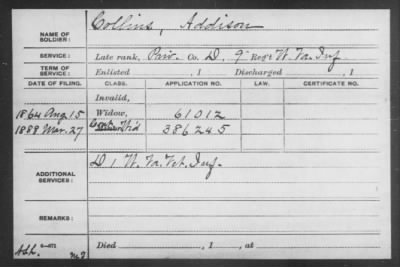 NAME OF SOLDIER: Collins, Addison
SERVICE: Late rank, Priv. Co. D, 9" Reg't W. Va. Inf
TERM OF SERVICE: Enlisted , 1 Discharged , 1
DATE OF FILING. CLASS. APPLICATION NO. LAW. CERTIFICATE NO.
Invalid,
1864 Aug 15 Widow, 61012
1888 Mar. 27 386245
ADDITIONAL SERVICES: D 1 W. Va. Vet. Inf.
REMARKS:
Died , 1 , at